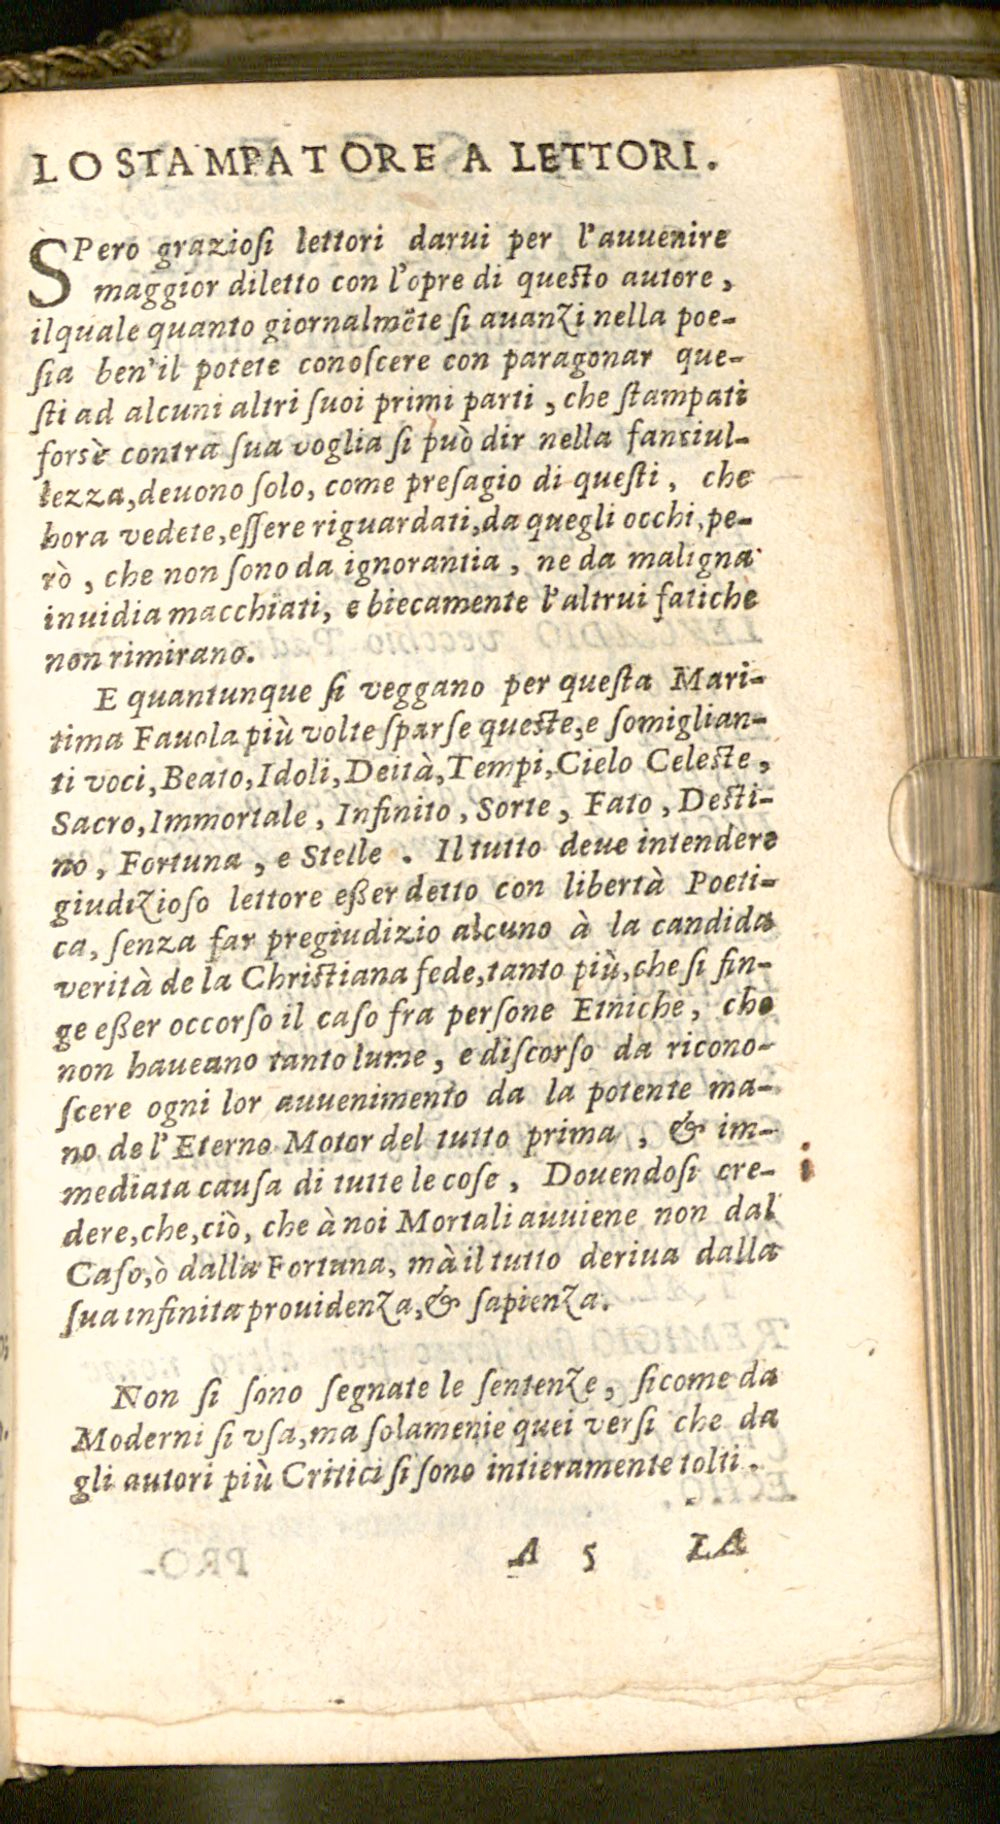 LO STAMPATORE A LETTORI.
SPero graziosi lettori darui per l'auuenire
maggior diletto con l'opre di questo autore,
ilquale quanto giornalmẽte si auanzi nella poe-
sia ben'il potete conoscere con paragonar que-
sti ad alcuni altri suoi primi parti, che stampati
forsè contra sua voglia si può dir nella fanciul-
lezza, deuono solo, come presagio di questi, che
hora vedete, essere riguardati, da quegli occhi, pe-
rò, che non sono da ignorantia, ne da maligna
inuidia macchiati, e biecamente l'altrui fatiche
non rimirano.
E quantunque si veggano per questa Mari-
tima Fauola più volte sparse queste, e somiglian-
ti voci, Beato, Idoli, Deità, Tempi, Cielo Celeste,
Sacro, Immortale, Infinito, Sorte, Fato, Desti-
no, Fortuna, e Stelle. Il tutto deue intendere
giudizioso lettore eßer detto con libertà Poeti-
ca, senza far pregiudizio alcuno à la candida
verità de la Christiana fede, tanto più, che si fin-
ge eßer occorso il caso fra persone Etniche, che
non haueano tanto lume, e discorso da ricono-
scere ogni lor auuenimento da la potente ma-
no de l'Eterno Motor del tutto prima, & im-
mediata causa di tutte le cose, Douendosi cre-
dere, che, ciò, che à noi Mortali auuiene non dal
Caso, ò dalla Fortuna, mà il tutto deriua dalla
sua infinita prouidenza, & sapienza.
Non si sono segnate le sentenze, sicome da
Moderni si vsa, ma solamente quei versi che da
gli autori più Critici si sono intieramente tolti.
A 5 LA